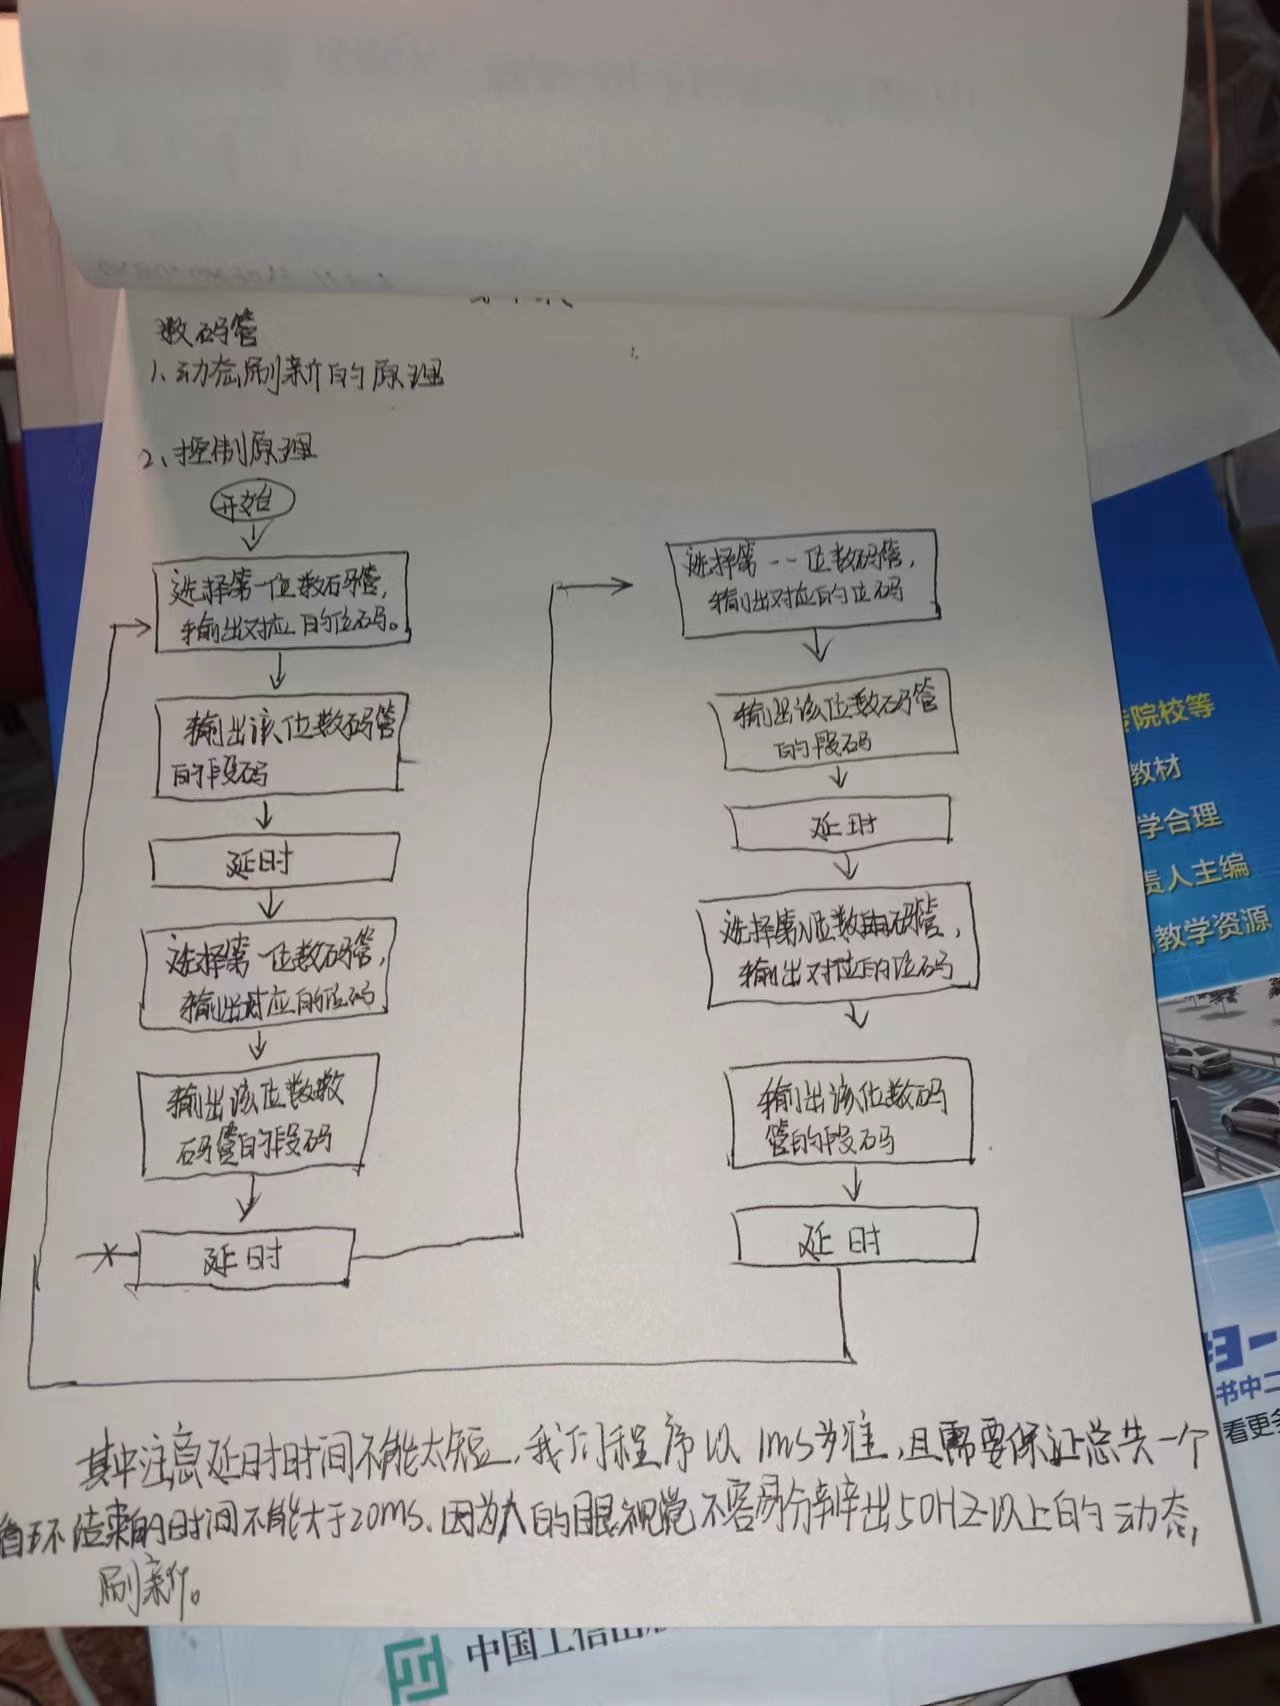 数码管
1、动态刷新的原理
2、控制原理
开始
选择第一位数码管,
输出对应的位码。
输出该位数码管
的段码
延时
选择第一位数码管,
输出对应的位码
输出该位数数
码管的段码
延时
选择第--位数码管,
输出对应的位码
输出该位数码管
的段码
延时
选择第N位数码管,
输出对应的位码
输出该位数码
管的段码
延时
其中注意延时时间不能太短,我们程序以1ms为准,且需要保证总共一个
循环结束的时间不能大于20ms.因为人的眼视觉不容易分辨出50HZ以上的动态
刷新。
院校等
教材
学合理
责人主编
教学资源
扫一
书中二
看更多
中国工信出版